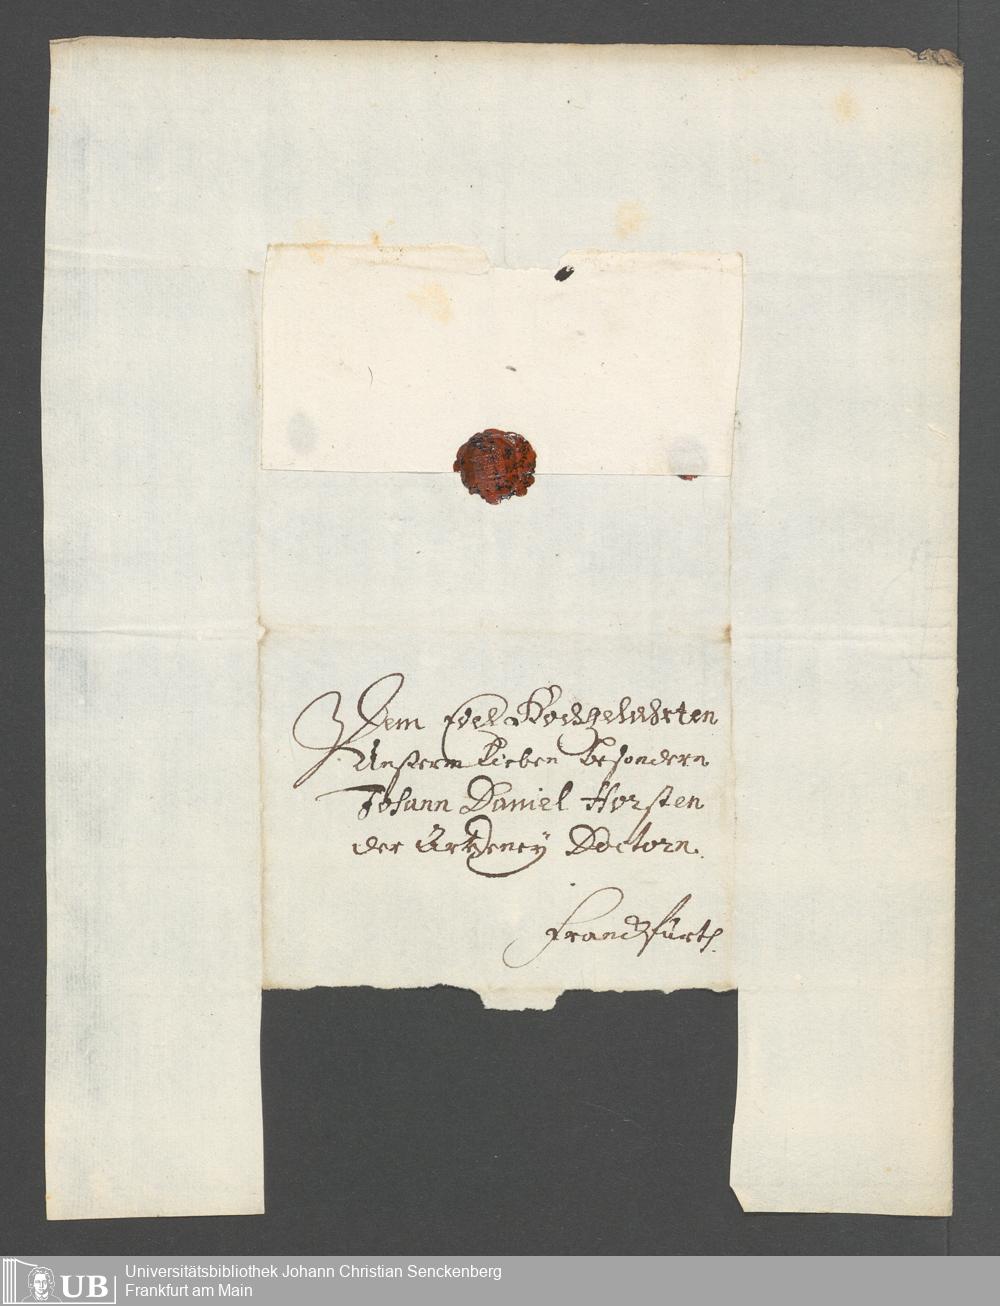 Dem Edel Hochgelahrten
Unserm Lieben Besondern
Johann Daniel Horsten
der Artzeney Doctorn.
Franckfürth.
UB
Universitätsbibliothek Johann Christian Senckenberg
Frankfurt am Main